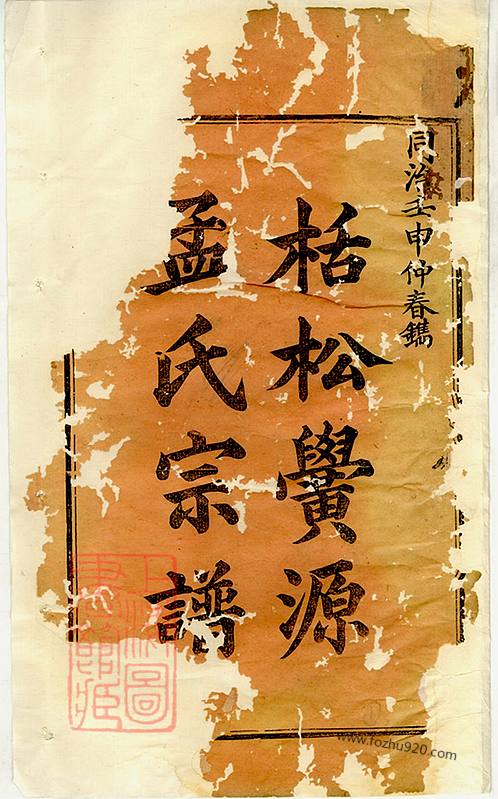 同治壬申仲春鐫
栝松黌源
孟氏宗譜
上海圖書館藏
www.fozhu920.com